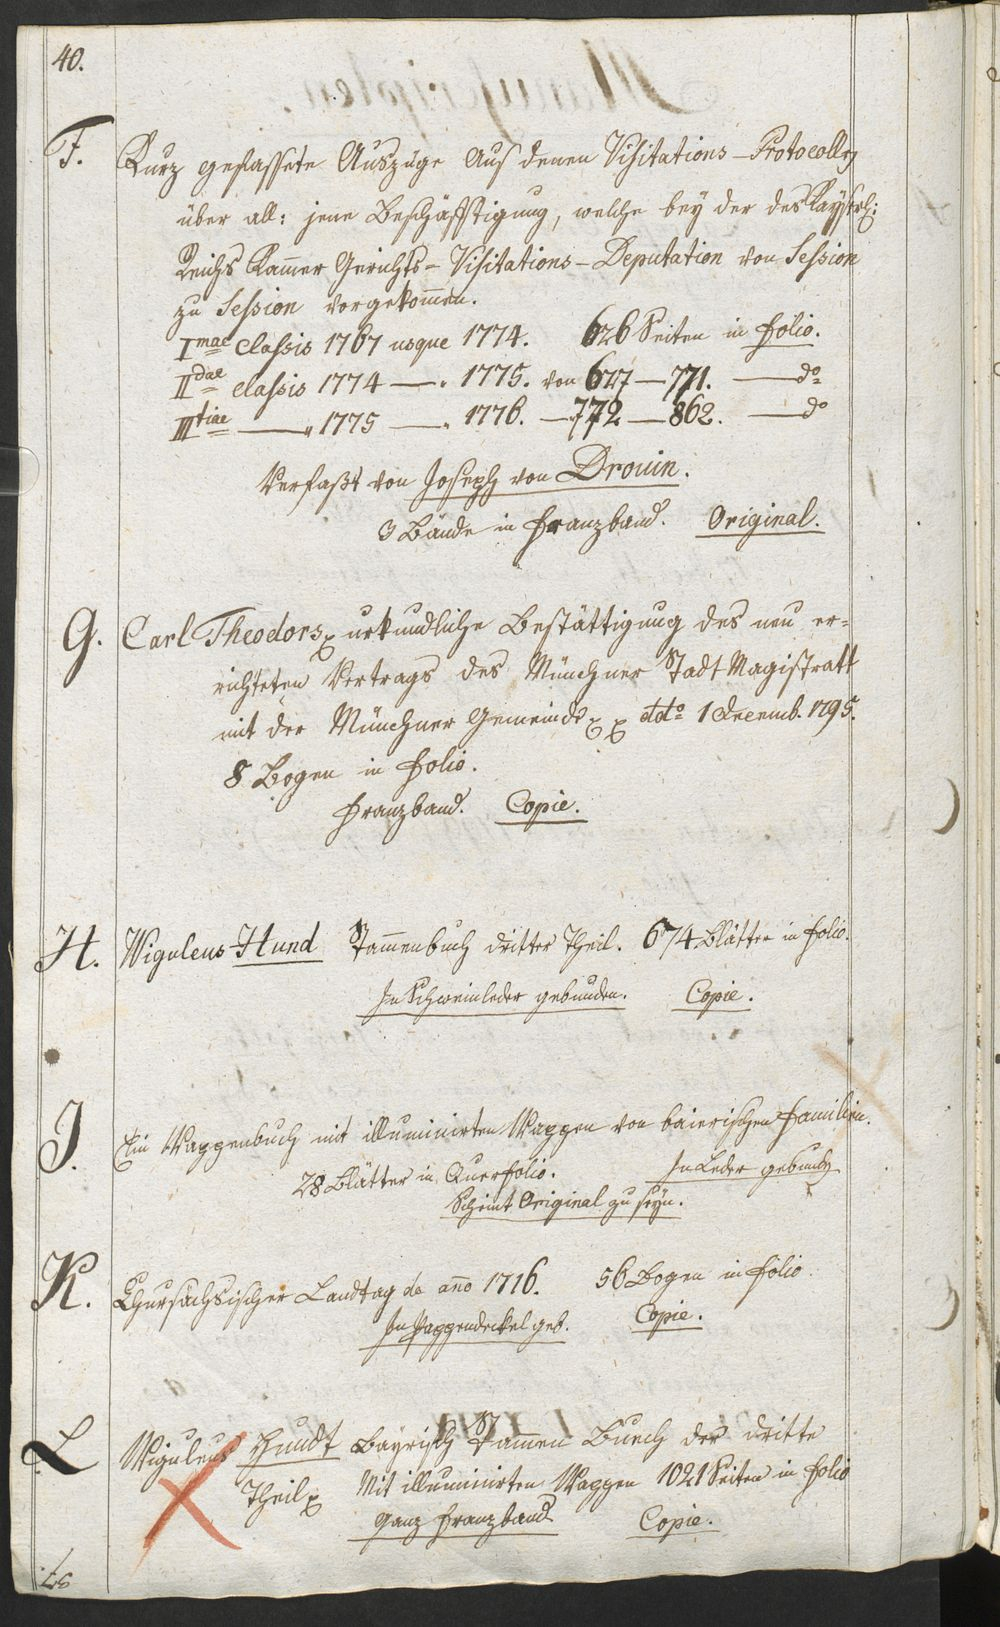 40.
F. Kurz gefassete Auszüge Aus denen Visitations-Protocolln
über all: jene Beschäfftigung, welche bey der des Kayserl:
Reichs Kam̄er Gerichts-Visitations-Deputation von Session
zu Session vorgekom̄en.
I mae Classis 1767 usque 1774. 626 Seiten in folio.
II dae classis 1774 —„ 1775. von 627—771. — do
III tiae —„ 1775 —„ 1776. — 772—862. — do
Verfaßt von Joseph von Drouin.
3 Bände in Franzband. Original.
G. Carl Theodors urkundliche Bestättigung des neu er-
richteten Vertrags des Münchner Stadt Magistratt
mit der Münchner Gemeinde ddo 1 Decemb. 1795.
8 Bogen in folio.
Franzband. Copie.
H. Wiguleus Hund Stam̄enbuch dritter Theil. 674 Blätter in folio.
In Schweinleder gebunden. Copie.
I. Ein Wappenbuch mit illuminirten Wappen von baierischen Familien.
28 Blätter in Querfolio. In Leder gebunden
Scheint Original zu seyn.
K. Chursächsischer Landtag de año 1716. 56 Bogen in folio.
In Pappendeckel geb. Copie.
L Wiguleus Hundt Bayrisch Stam̄en Buech der dritte
Theil Mit illuminirten Wappen 1021 Seiten in folio
Ganz Franzband Copie.